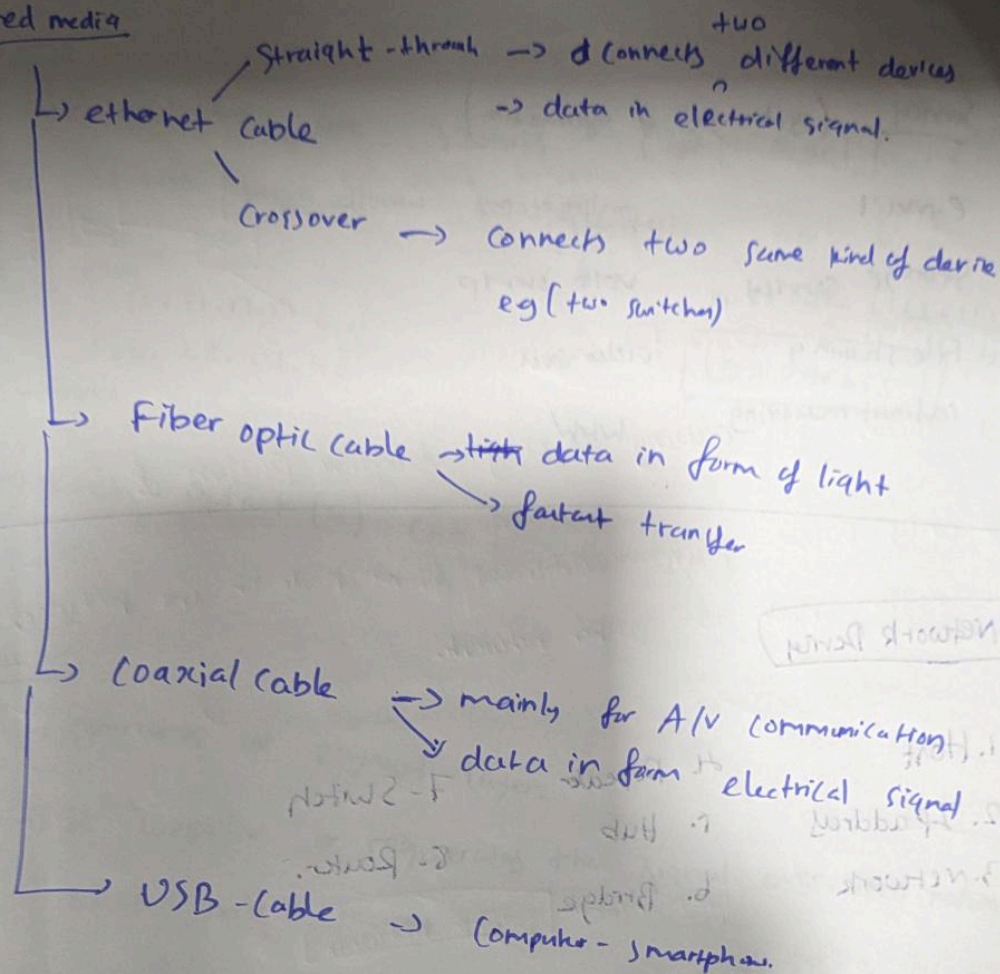 ed media
two
Straight-through → connects different devices
→ data in electrical signal.
ethernet cable
Crossover → connects two same kind of device
eg (two switches)
Fiber optic cable → data in form of light
→ fastest transfer
Coaxial cable → mainly for A/V communication
→ data in form electrical signal
USB-Cable → Computer - smartphone.